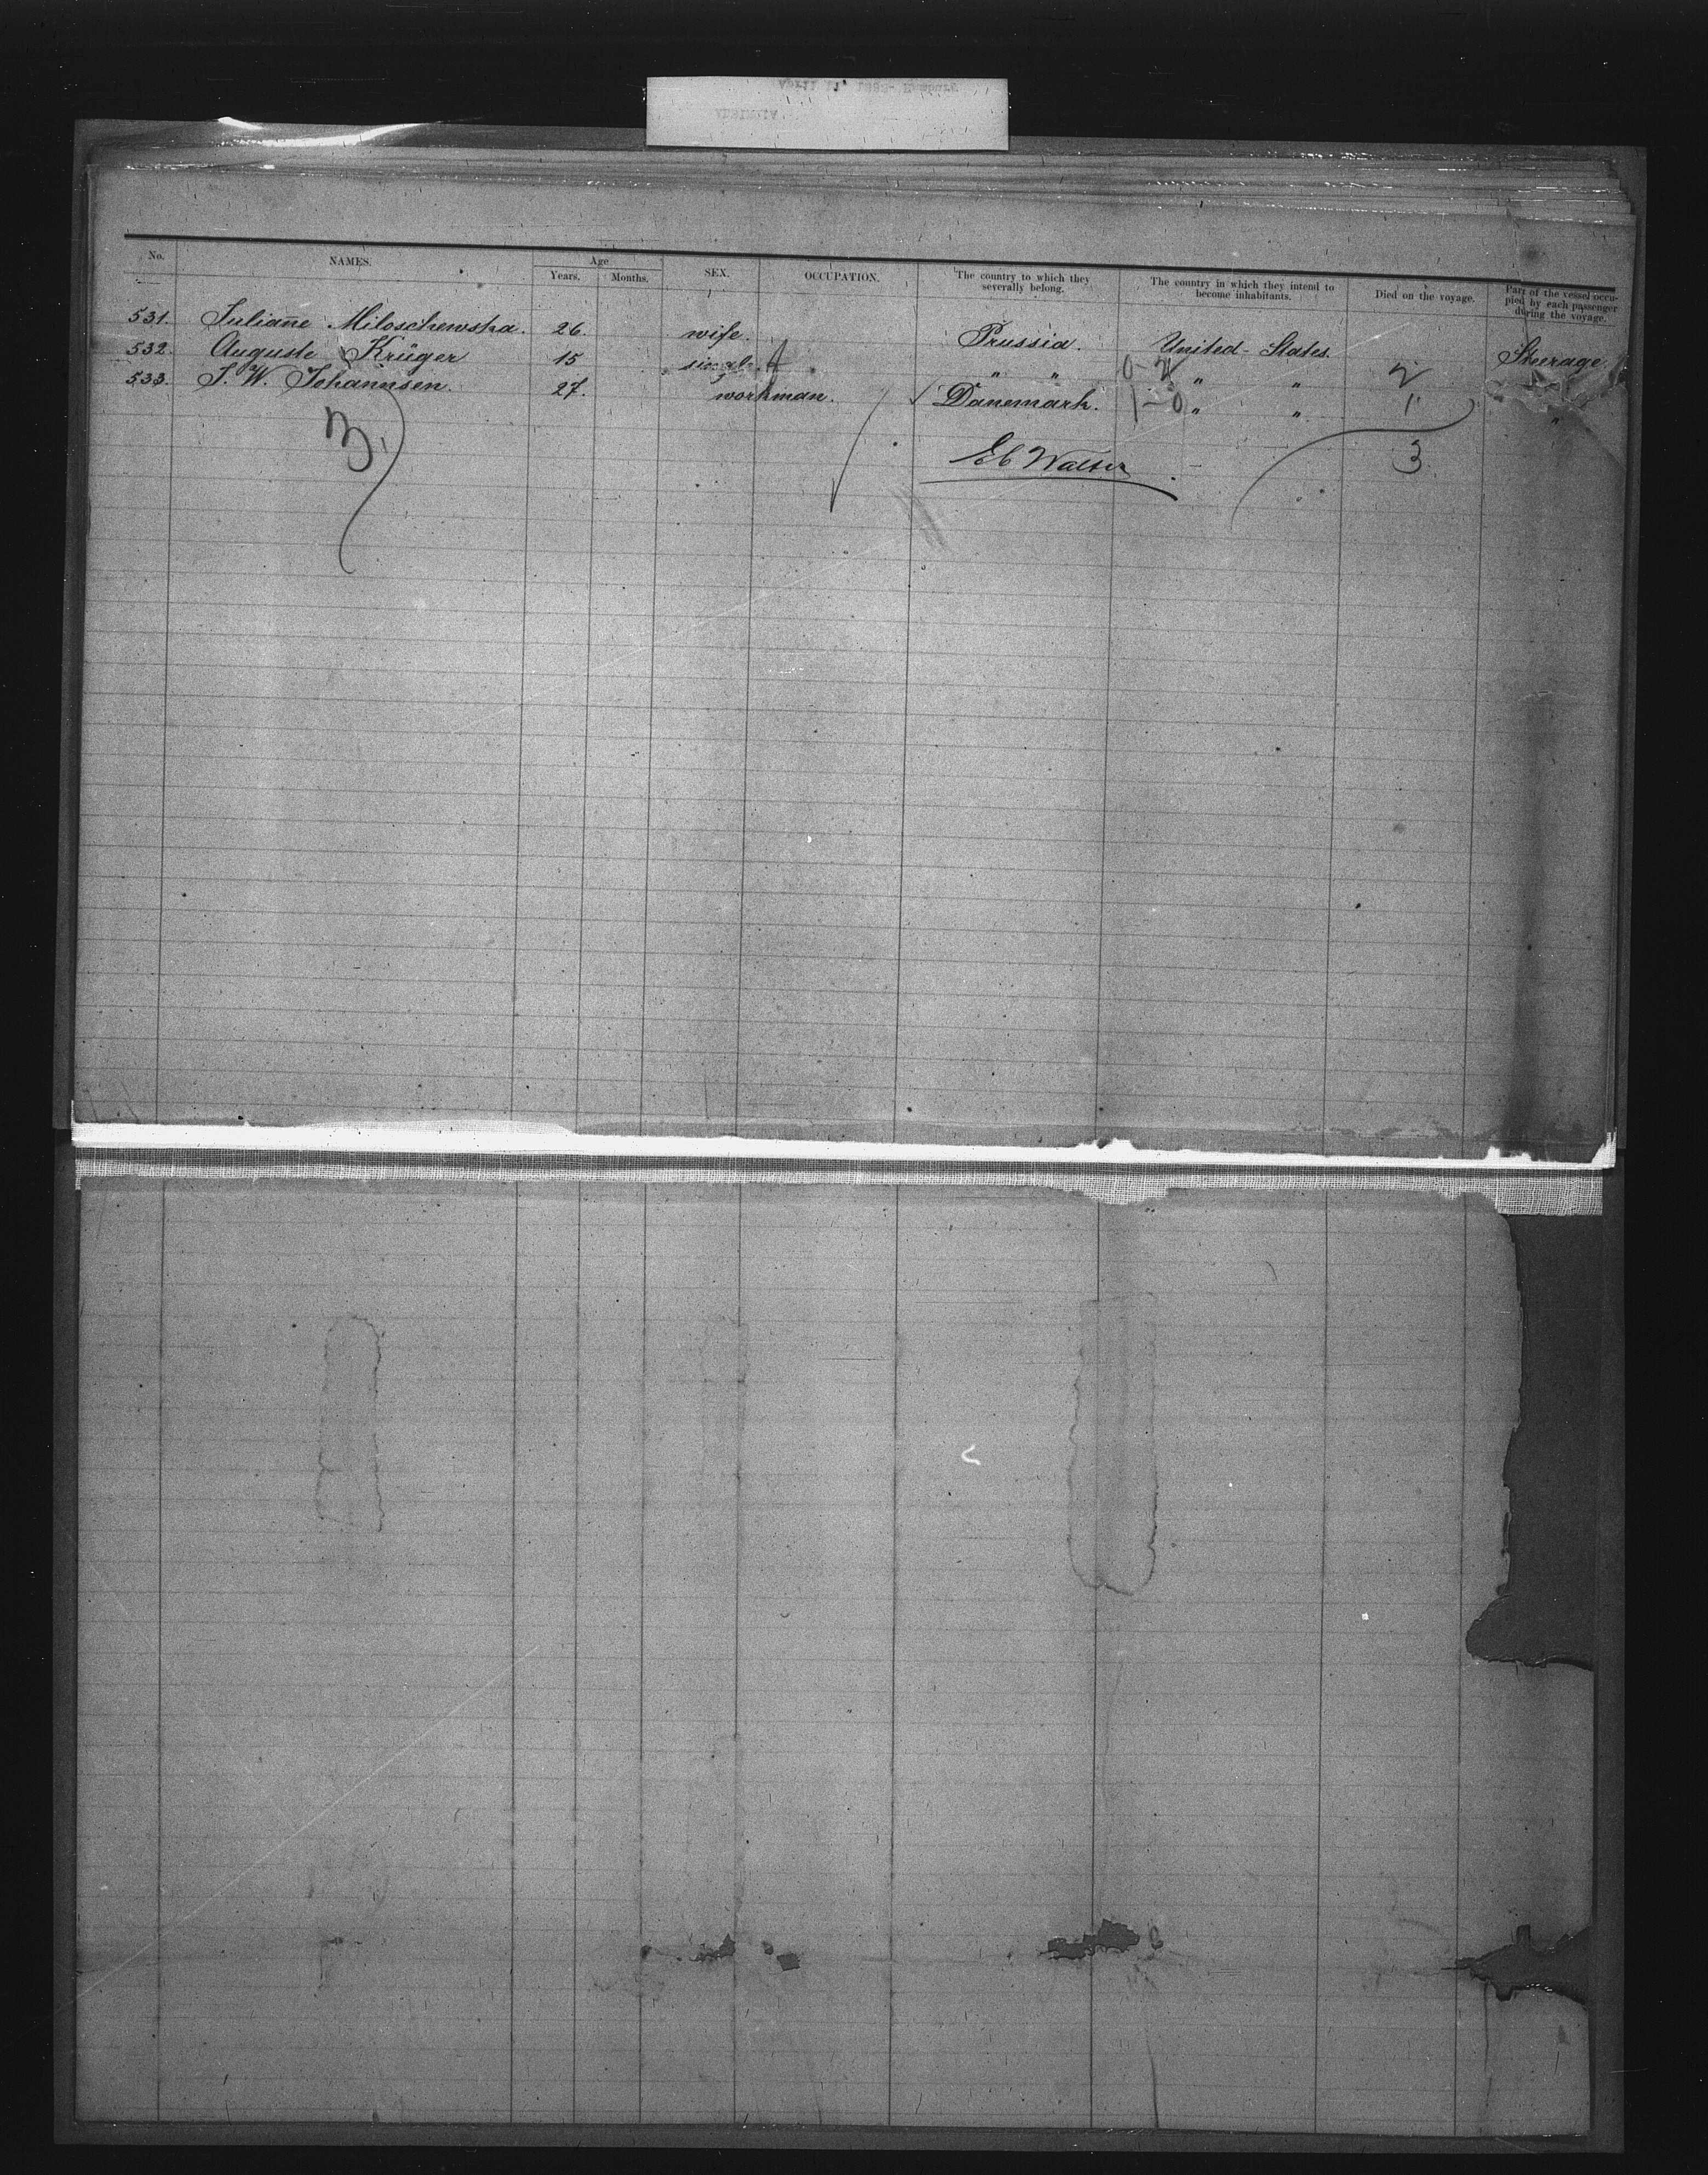 April 11, 1885- Hamburg
No. NAMES. Age Years. Months. SEX. OCCUPATION. The country to which they severally belong. The country in which they intend to become inhabitants. Died on the voyage. Part of the vessel occupied by each passenger during the voyage.
531. Juliane Miloschewska. 26. wife. Prussia. United-States. Steerage
532. Auguste Krüger 15 single " " 0-2 " " 2
533. J. W. Johannsen. 27. workman. Danemark. 1-0 " " 1 "
3 3